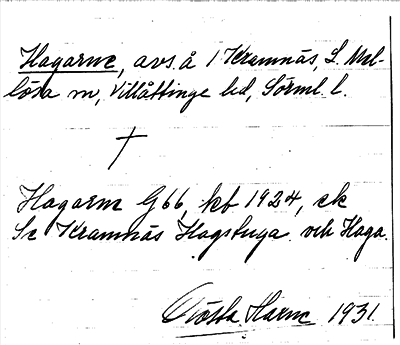 Hagarne, avs. å 1 Kramnäs, L. Mel-
lösa sn, Villåttinge hd, Sörml. l.
Hagarne G66, kbf 1924, ek
Se Kramnäs Hagstuga och Haga.
Gösta Harne 1931.